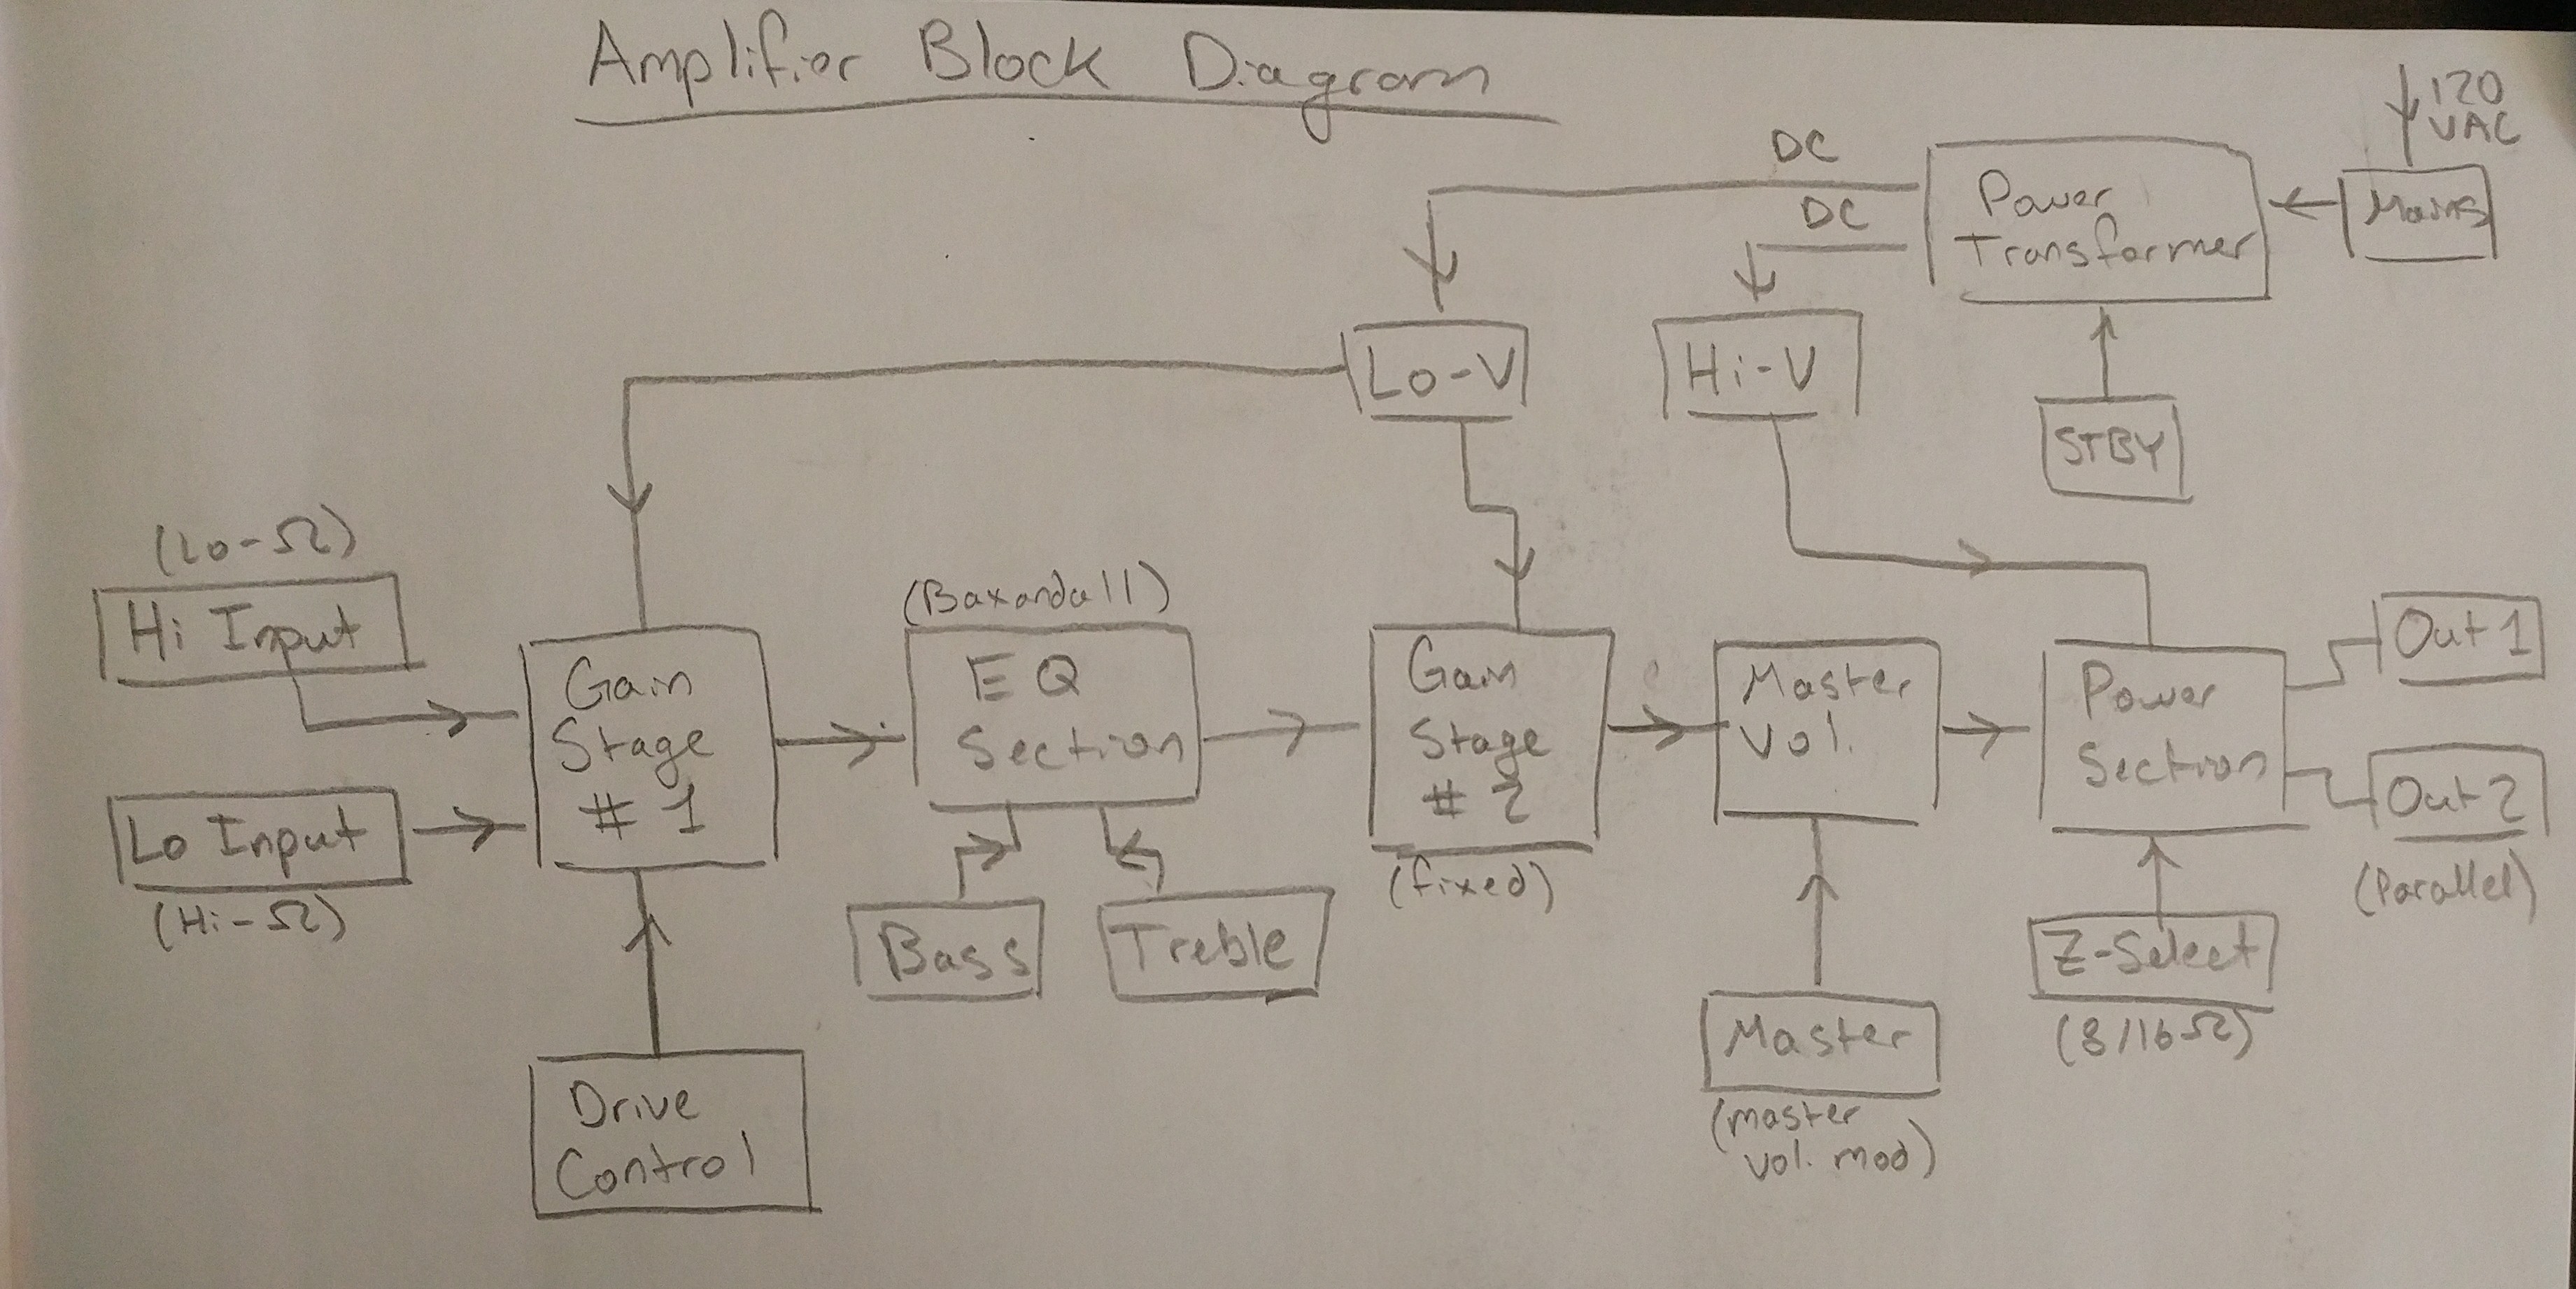 Amplifier Block Diagram
120
VAC
DC
DC
Power
Transformer
Mains
Lo-V
Hi-V
STBY
(Lo-Ω)
Hi Input
Lo Input
(Hi-Ω)
Gain
Stage
# 1
Drive
Control
(Baxandall)
EQ
Section
Bass
Treble
Gain
Stage
# 2
(fixed)
Master
Vol.
Master
(master
vol. mod)
Power
Section
Z-Select
(8/16Ω)
Out 1
Out 2
(Parallel)